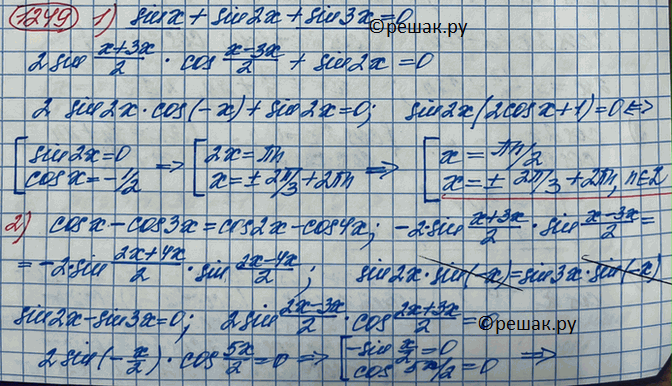 1249 1) sinx + sin2x + sin3x = 0
©решак.ру
2 sin (x+3x)/2 · cos (x-3x)/2 + sin2x = 0
2 sin2x · cos(-x) + sin2x = 0; sin2x(2cosx+1) = 0 <=>
[ sin2x = 0 => [ 2x = πn => [ x = πn/2
cosx = -1/2 x = ± 2π/3 + 2πn x = ± 2π/3 + 2πn, n∈Z
2) cosx - cos3x = cos2x - cos4x; -2·sin (x+3x)/2 · sin (x-3x)/2 =
= -2 sin (2x+4x)/2 · sin (2x-4x)/2; sin2x · sin(-x) = sin3x · sin(-x)
sin2x - sin3x = 0; 2 sin (2x-3x)/2 · cos (2x+3x)/2 = 0
©решак.ру
2 sin(-x/2) · cos 5x/2 = 0 => [ -sin x/2 = 0 =>
cos 5x/2 = 0